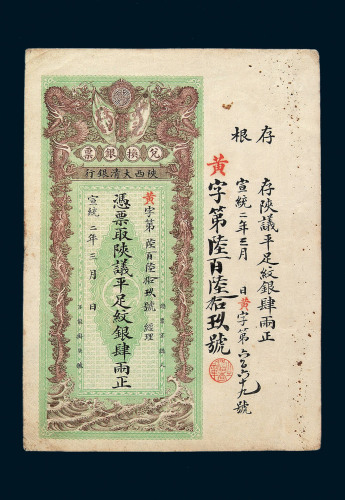 存
根
存陝議平足紋銀肆兩正
宣統二年三月 日黃字第六百六十九號
黃字第陸百陸拾玖號
兌換銀票
陝西大清銀行
黃字第陸百陸拾玖號 經理
憑票取陝議平足紋銀肆兩正
宣統二年三月 日